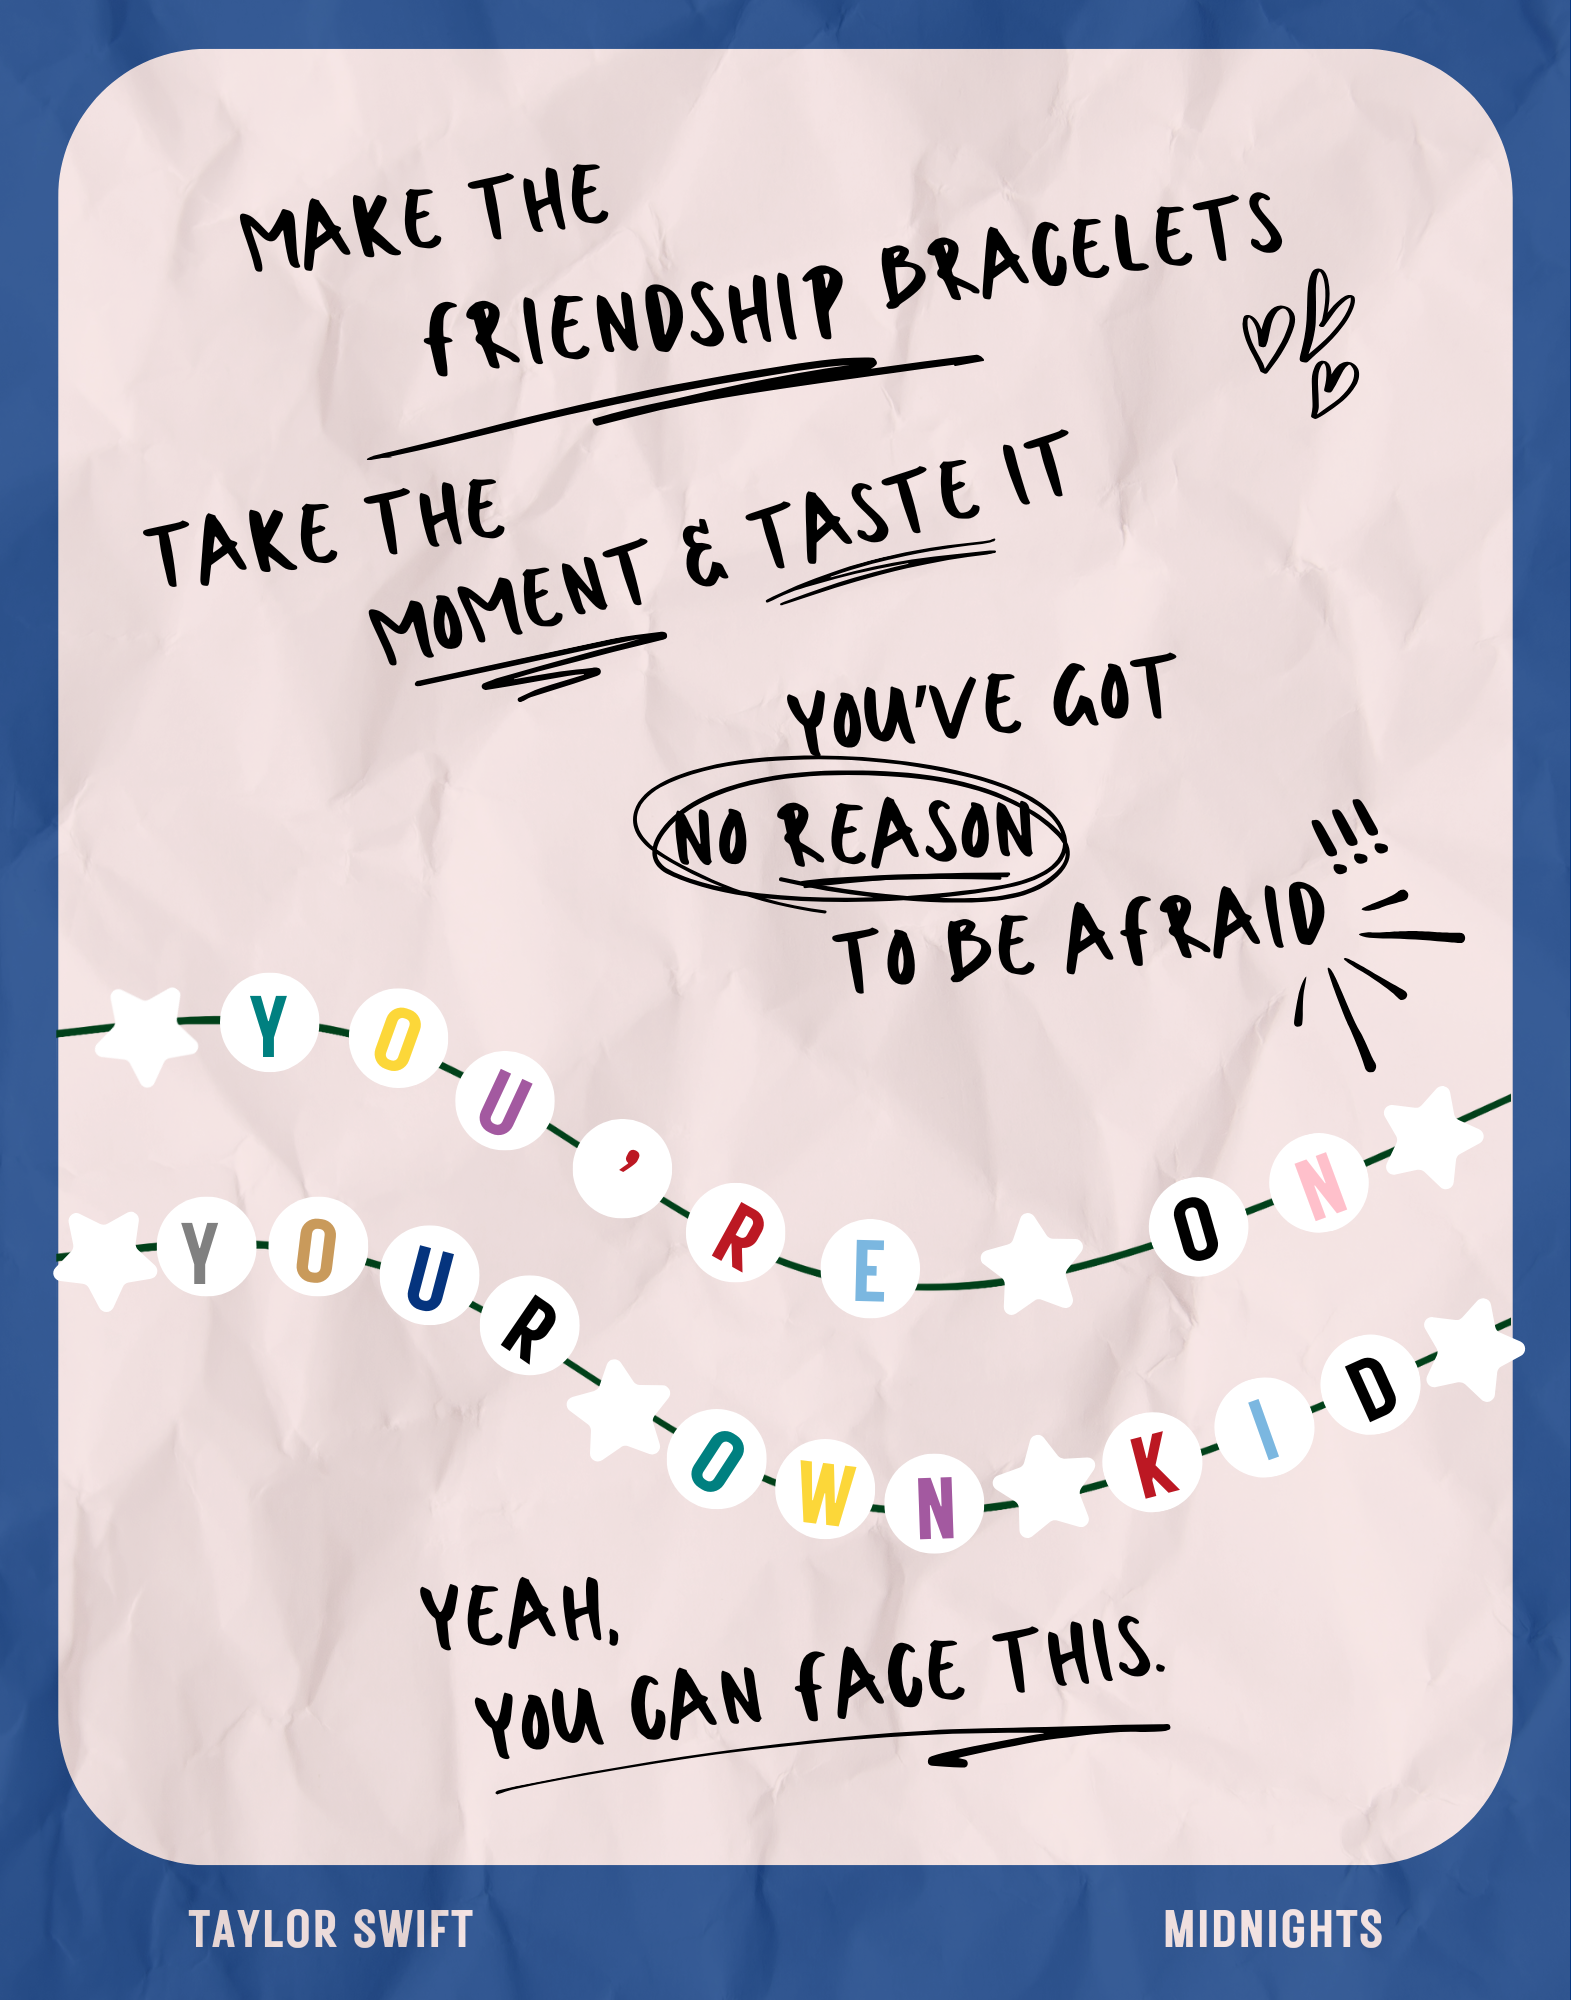 MAKE THE
FRIENDSHIP BRACELETS
TAKE THE
MOMENT & TASTE IT
YOU'VE GOT
NO REASON
TO BE AFRAID!!!
YOU'RE ON
YOUR OWN KID
YEAH,
YOU CAN FACE THIS.
TAYLOR SWIFT
MIDNIGHTS